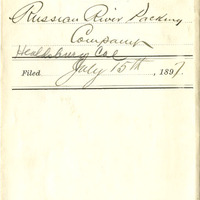 Russian River Packing
Company
Healdsburg Cal
Filed July 15th, 1897.